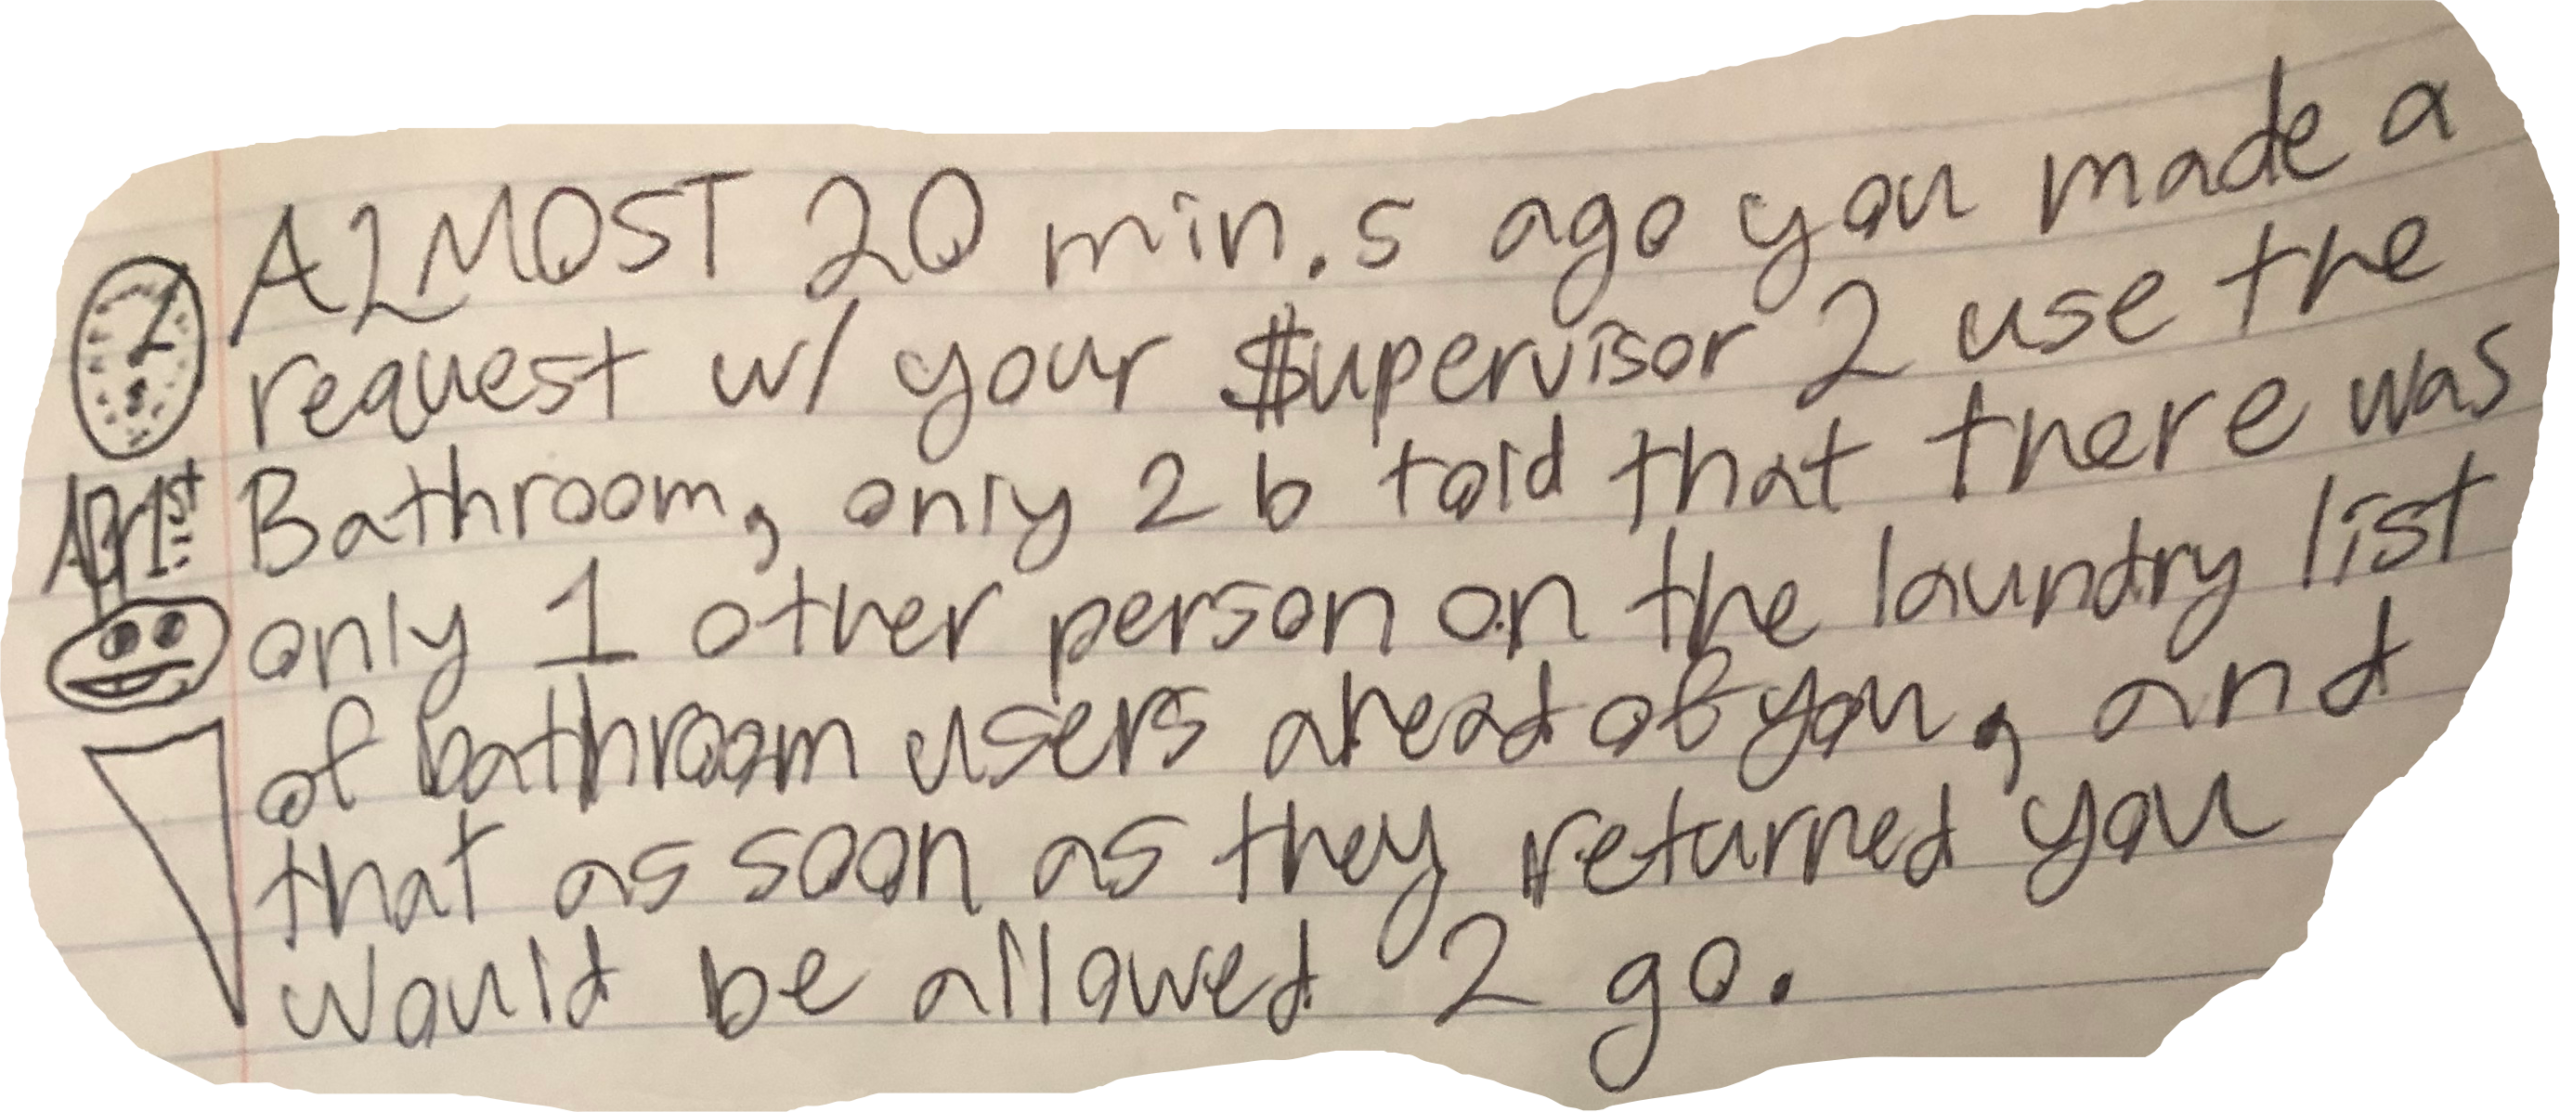 ALMOST 20 min.s ago you made a
request w/ your $upervisor 2 use the
Bathroom, only 2 b told that there was
Apr 1st
only 1 other person on the laundry list
of bathroom users ahead of you, and
that as soon as they returned you
would be allowed 2 go.